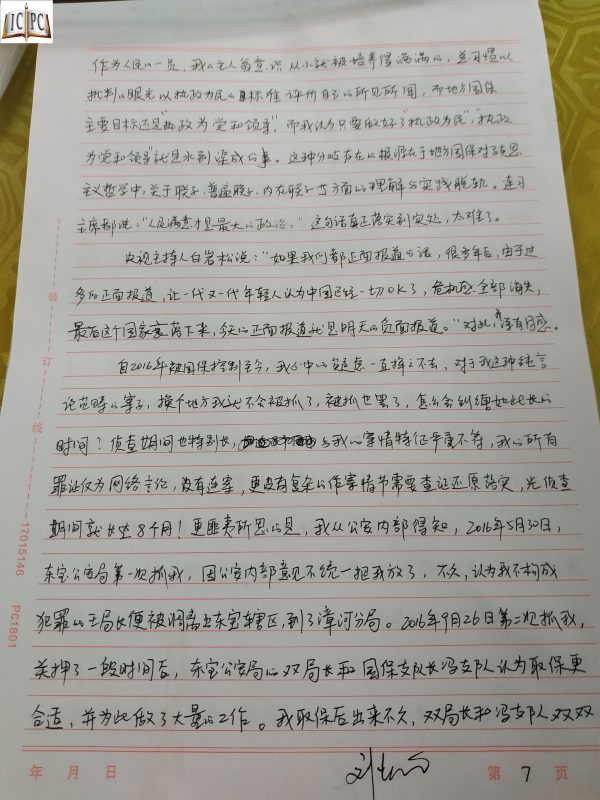 ICPC
作为人民的一员，我的主人翁意识从小就被培养得满满的，并习惯以
批判的眼光以执政为民的目标准评价自己的所见所闻，而地方国保
主要目标还是"执政为党和领导"，而我认为只要做好了"执政为民"，"执政
为党和领导"就是水到渠成的事。这种分歧存在的根源在于地方国保对
主义哲学中，关于联系、普遍联系、内在联系等方面的理解与实践脱轨。连习
主席都说："人民满意才是最大的政治。"这句话真正落实到实处，太难了。
央视主持人白岩松说："如果我们都正面报道的话，很多年后，由于过
多的正面报道，让一代又一代年轻人认为中国已经一切OK了，危机感全部消失，
最后这个国家衰落下来，今天的正面报道就是明天的负面报道。"对此，我深有同感。
自2016年被国保控制至今，我心中的疑虑一直挥之不去，对于我这种纯言
论范畴的案子，换个地方我就不会被抓了，被抓也罢了，怎么会纠缠如此长的
时间？侦查期间也特别长，与我的案情特征严重不符，我的所有
罪证仅为网络言论，没有连案，更没有复杂的作案情节需要查证还原落实，光侦查
期间就长达8个月！更匪夷所思的是，我从公安内部得知，2016年5月30日，
东宝公安局第一次抓我，因公安内部意见不统一把我放了，不久，认为我不构成
犯罪的王局长便被调离出东宝辖区，到了漳河分局。2016年9月26日第二次抓我，
关押了一段时间后，东宝公安局的双局长和国保支队长冯支队认为取保更
合适，并为此做了大量的工作。我取保后出来不久，双局长和冯支队双双
装
订
线
17015146 PC1801
年 月 日
第 7